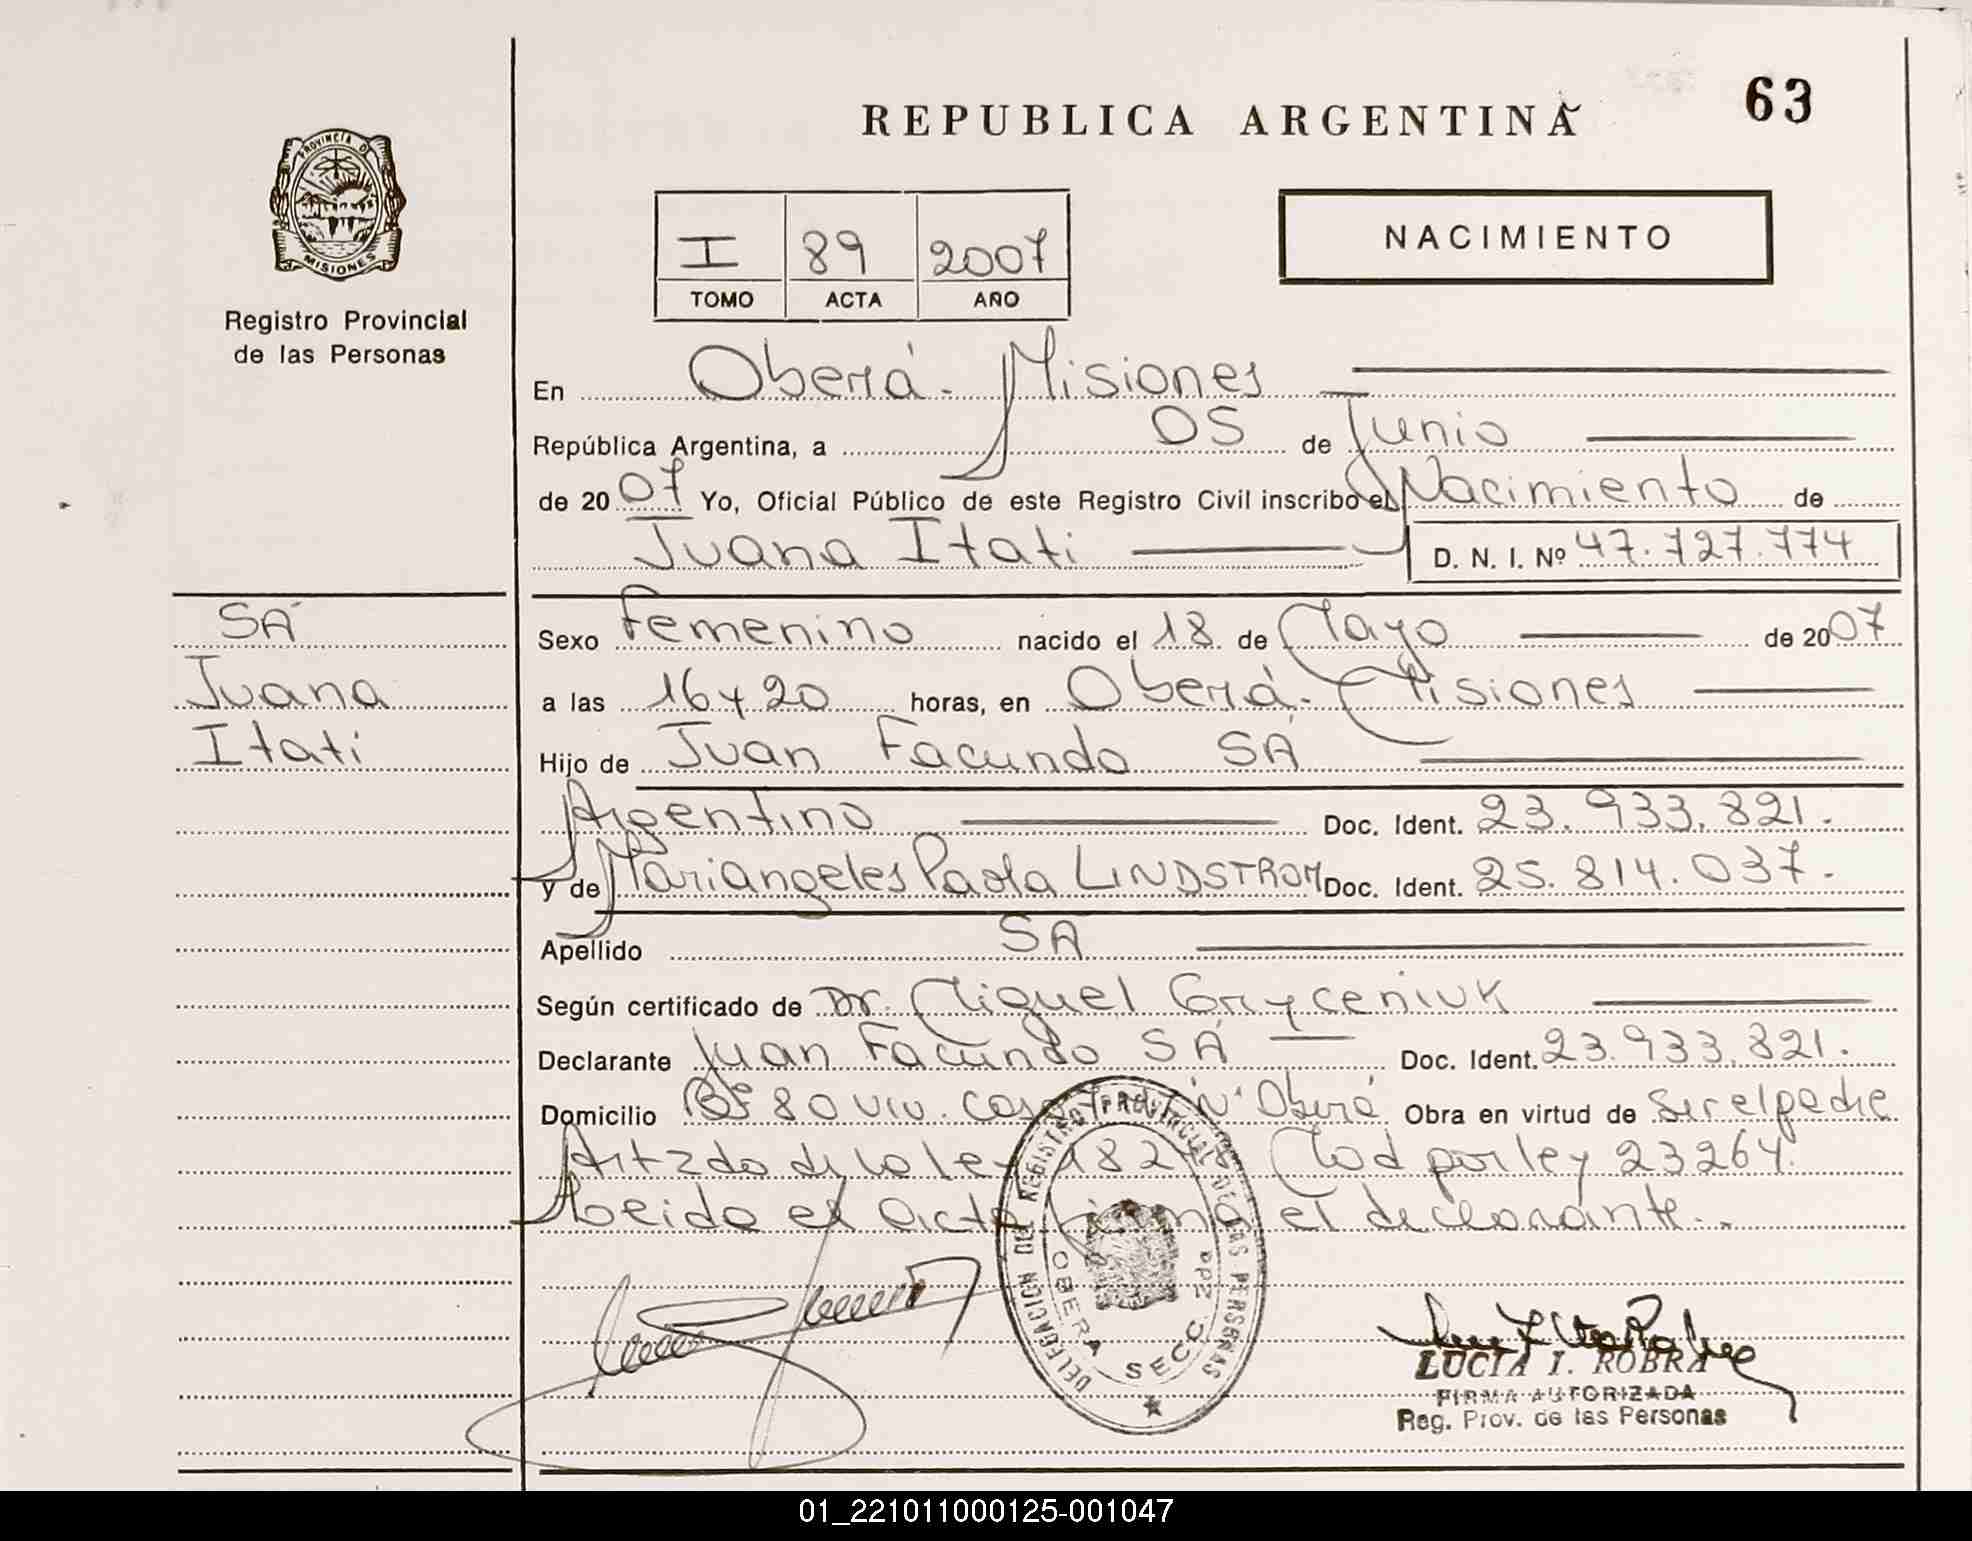 REPUBLICA ARGENTINA
63
PROVINCIA D
MISIONES
Registro Provincial
de las Personas
I 89 2007
TOMO ACTA AÑO
NACIMIENTO
En Oberá - Misiones
República Argentina, a 05 de Junio
de 2007 Yo, Oficial Público de este Registro Civil inscribo el Nacimiento de
Juana Itati D. N. I. Nº 47.727.774
SÁ
Juana
Itati
Sexo Femenino nacido el 18 de Mayo de 2007
a las 16 y 20 horas, en Oberá - Misiones
Hijo de Juan Facundo SÁ
Argentino Doc. Ident. 23.933.821.
y de Mariangeles Paola LINDSTROM Doc. Ident. 25.814.037.
Apellido SA
Según certificado de Dr. Miguel Gryceniuk
Declarante Juan Facundo SÁ Doc. Ident. 23.933.821.
Domicilio Bº 80 viv. Casa Nº Oberá Obra en virtud de Ser el padre
Art 2do de la ley 182 Mod por ley 23264.
Leido el acta firma el declarante.
DELEGACION DEL REGISTRO PROVINCIAL DE LAS PERSONAS
OBERA SECC. 2da
LUCIA I. ROBRA
FIRMA AUTORIZADA
Reg. Prov. de las Personas
01_221011000125-001047